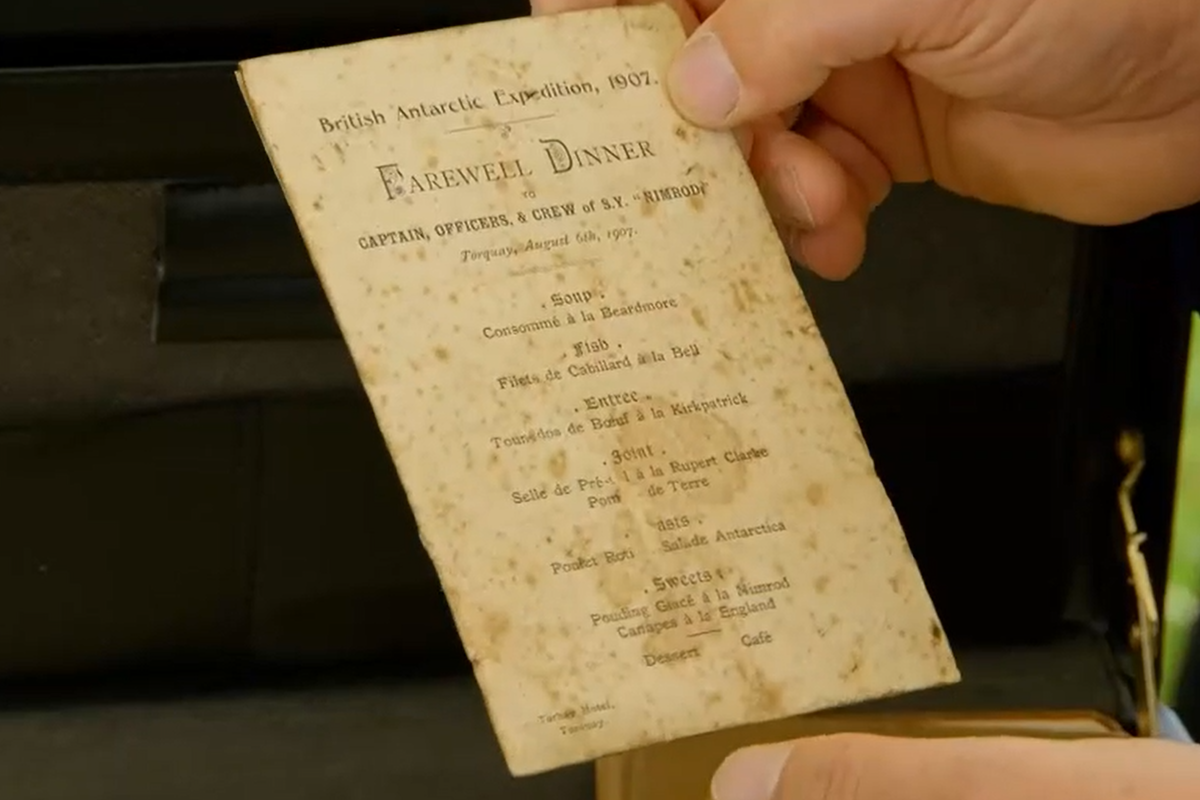 British Antarctic Expedition, 1907.
FAREWELL DINNER
TO
CAPTAIN, OFFICERS, & CREW of S.Y. "NIMROD"
Torquay, August 6th, 1907.
. Soup .
Consommé à la Beardmore
. Fish .
Filets de Cabillard à la Bell
. Entree .
Tournedos de Bœuf à la Kirkpatrick
. Joint .
Selle de à la Rupert Clarke
de Terre
Poulet Roti Salade Antarctica
. Sweets .
Pouding Glacé à la Nimrod
Canapes à la England
Dessert Café
Hotel,
Torquay.